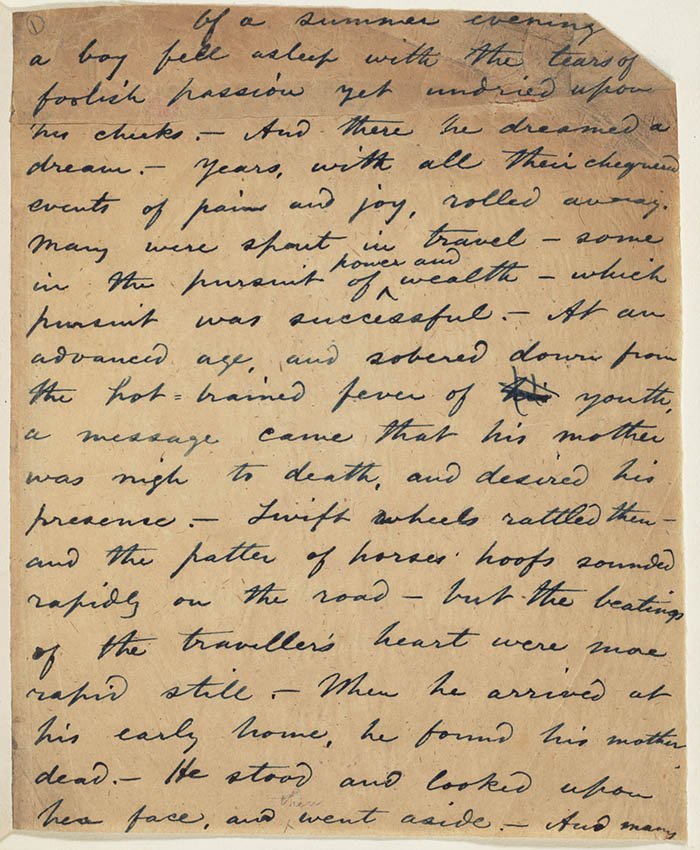 1
Of a summer evening
a boy fell asleep with the tears of
foolish passion yet undried upon
his cheeks. — And there he dreamed a
dream. — Years, with all their chequered
events of pain and joy, rolled away.
Many were spent in travel — some
in the pursuit of power and wealth — which
pursuit was successful. — At an
advanced age, and sobered down from
the hot-brained fever of youth,
a message came that his mother
was nigh to death, and desired his
presence. — Swift wheels rattled then —
and the patter of horses' hoofs sounded
rapidly on the road — but the beatings
of the traveller's heart were more
rapid still. — When he arrived at
his early home, he found his mother
dead. — He stood and looked upon
her face, and then went aside. — And many